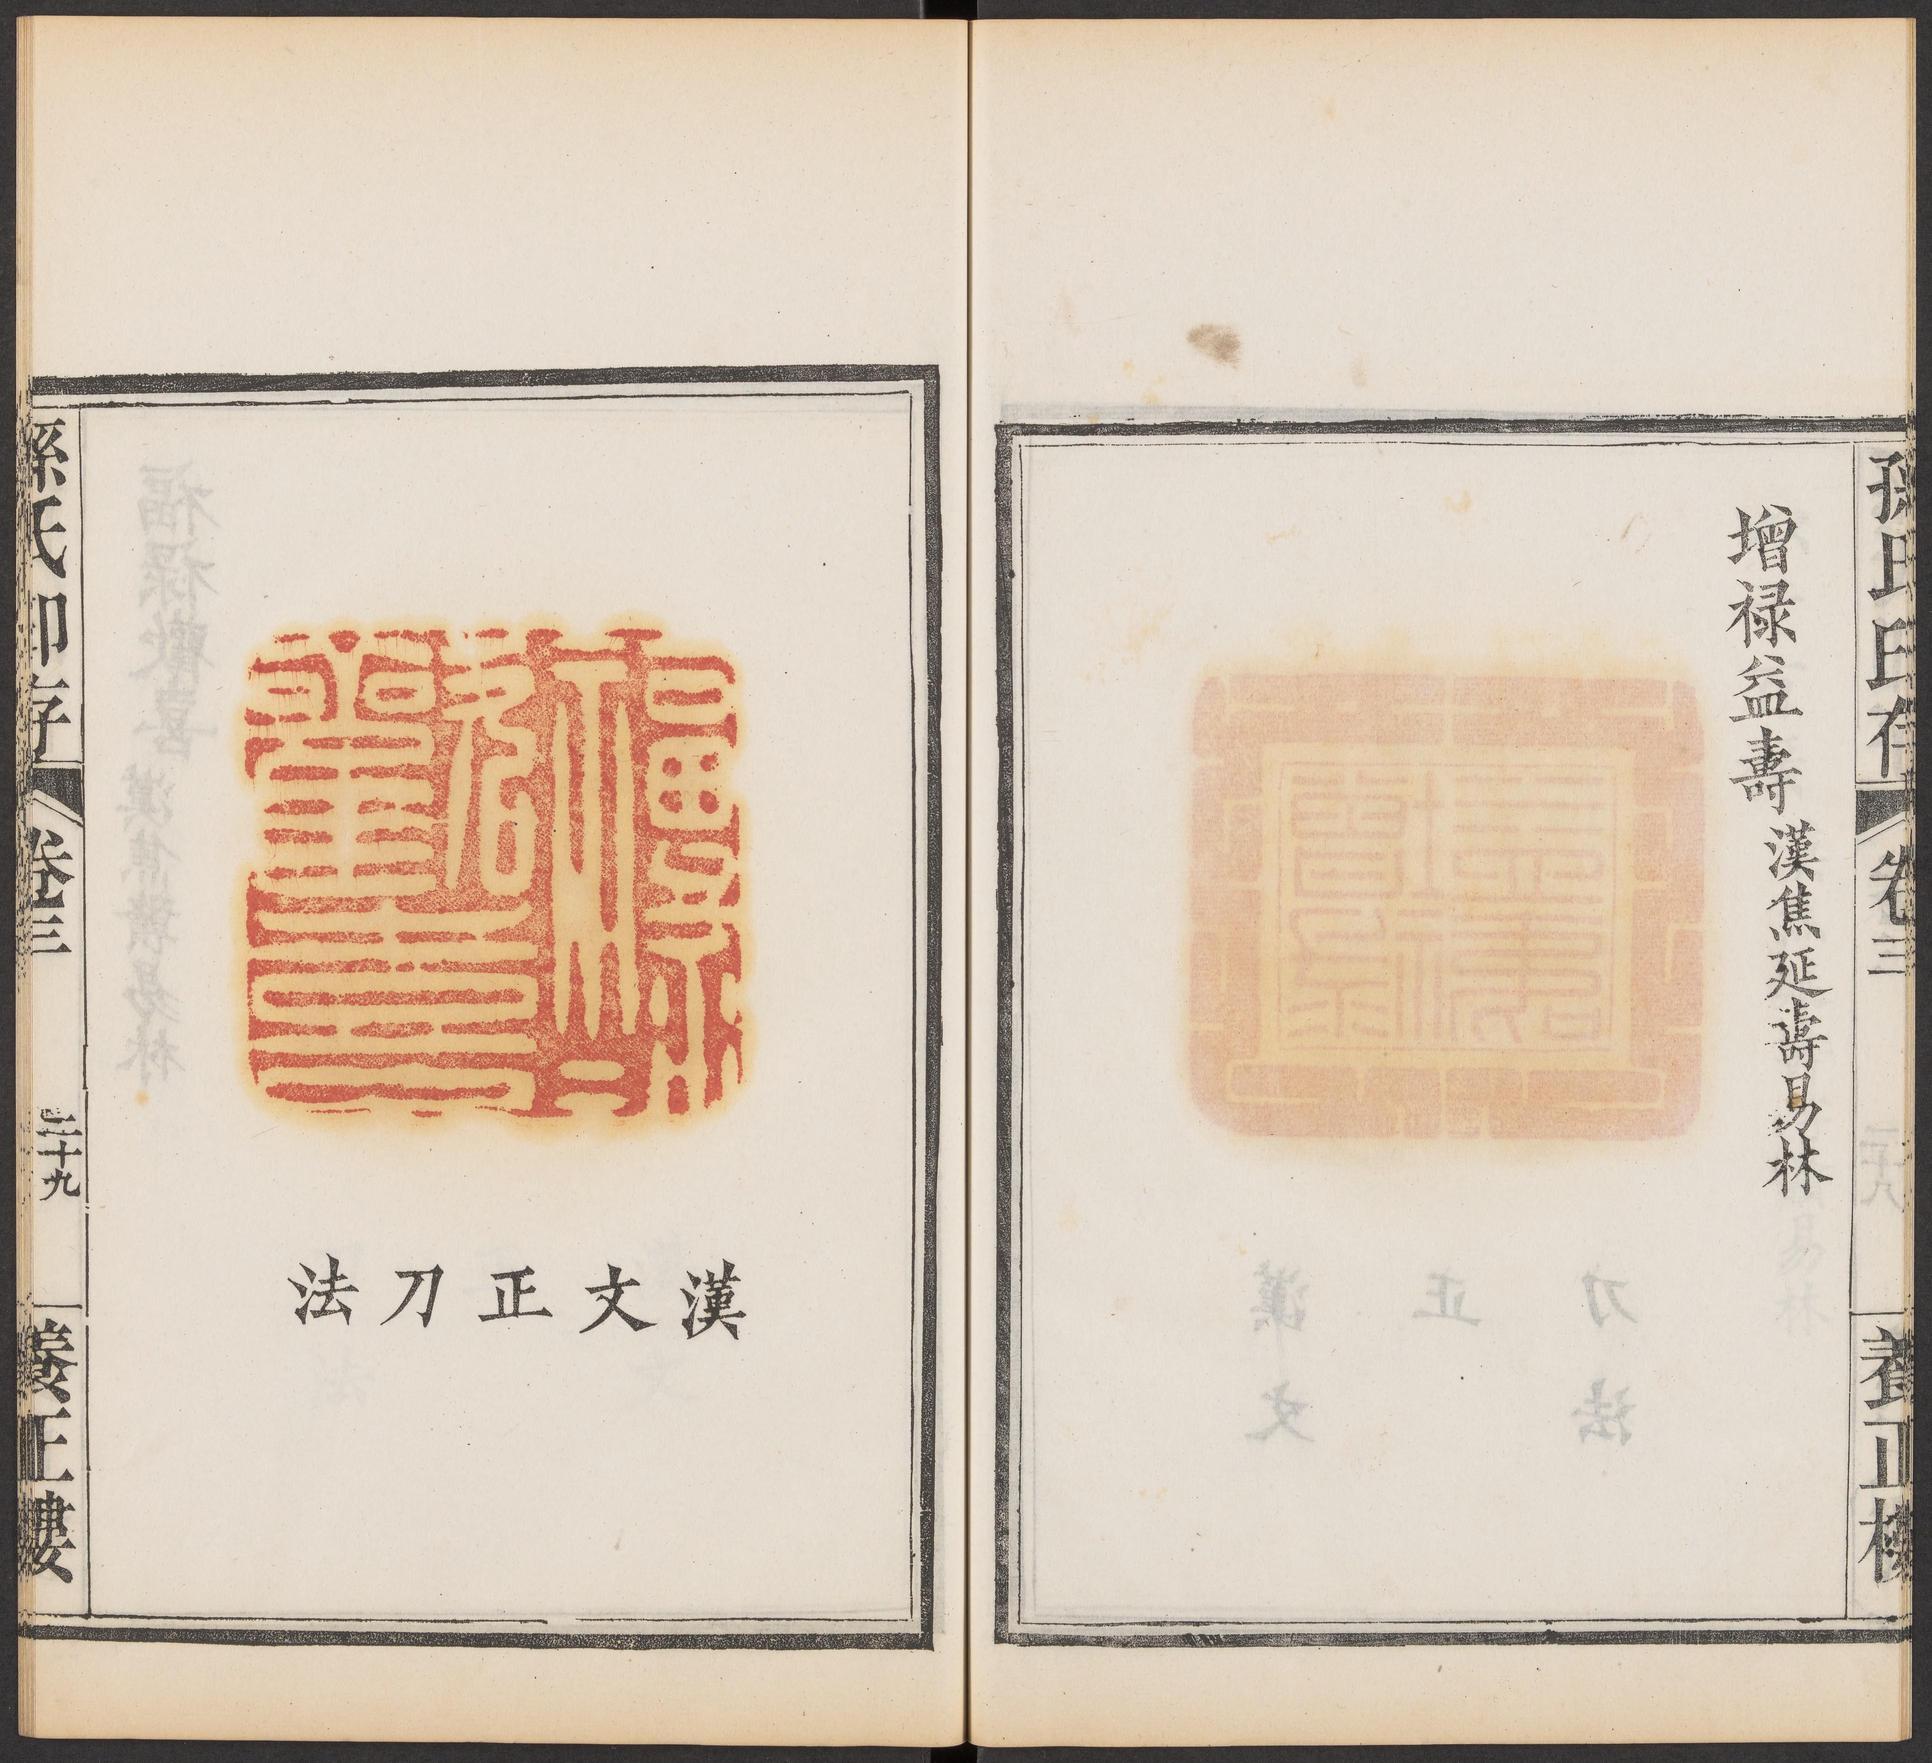 孫氏印存
卷三
養正樓
增祿益壽 漢焦延壽易林
漢文正刀法
孫氏印存
卷三
二十九
養正樓